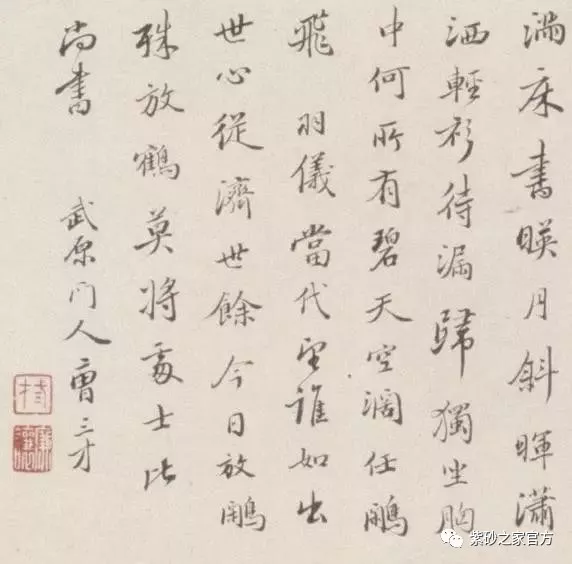 滿床書暎月斜暉瀟
洒輕衫待漏歸獨坐胸
中何所有碧天空濶任鵰
飛 羽儀當代望誰如出
世心從濟世餘今日放鵰
殊放鶴莫將處士比
尚書 武原門人曹三才
紫砂之家官方